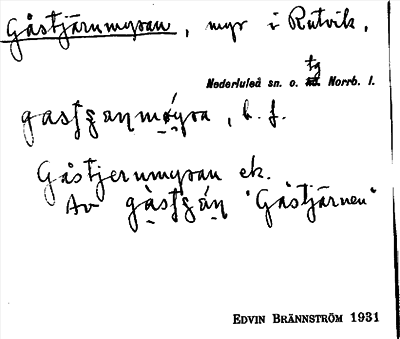 Gåstjärnmyran, myr i Rutvik,
tg
Nederluleå sn. o. hd. Norrb. l.
gastȿanmǿyra, b. f.
Gåstjernmyran ek.
Av gàstȿáṇ "Gåstjärnen"
EDVIN BRÄNNSTRÖM 1931